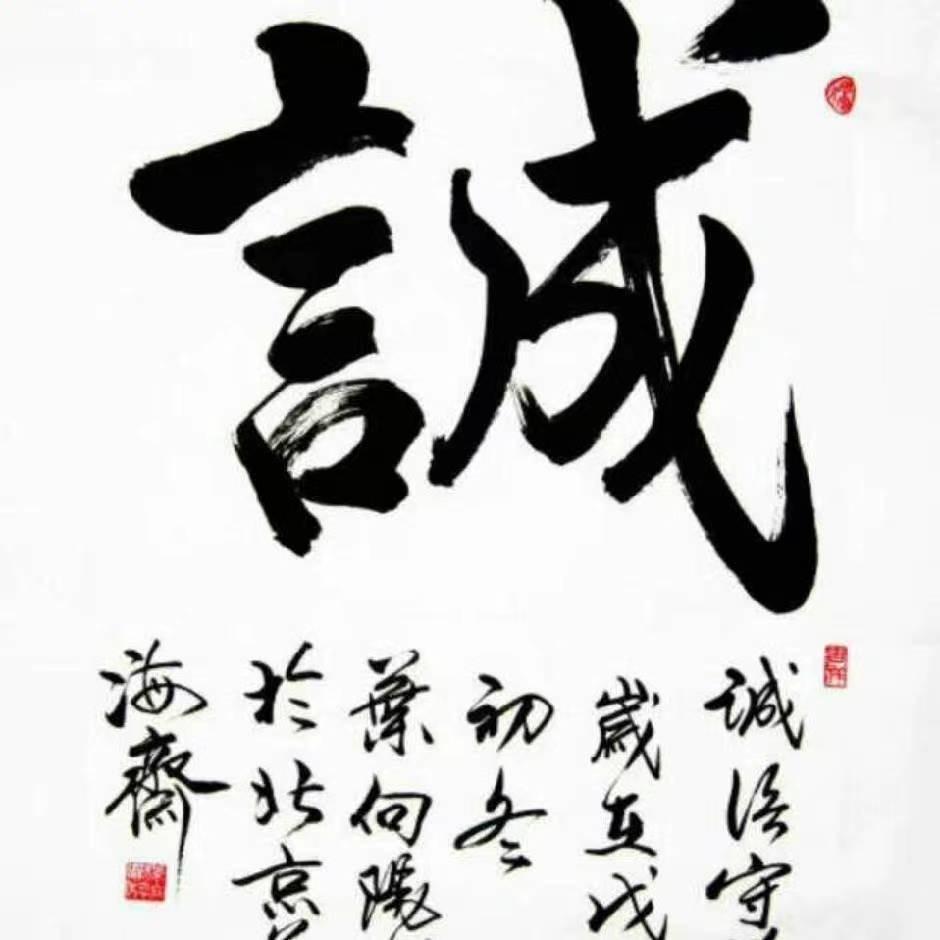 誠
誠信守
歲在戊
初冬
葉向陽
於北京
海齋